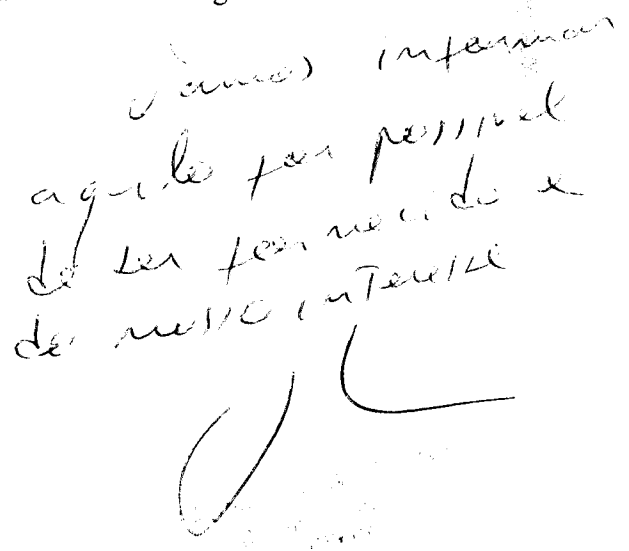 Vamos informar
aquilo for possivel
de ser fornecido e
de nosso interesse